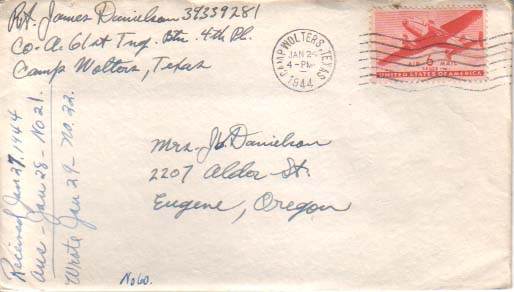 Pvt. James Danielson 39339281
Co. A. 61st Inf. Btn. 4th Pl.
Camp Wolters, Texas
CAMP WOLTERS, TEXAS
JAN 2
4-PM
1944
6¢
AIR MAIL
UNITED STATES OF AMERICA
Mrs. J. Danielson
2207 Alder St.
Eugene, Oregon
Received Jan 27, 1944
ans - Jan 28 - No 21.
Wrote Jan 29 - No. 22.
No 60.